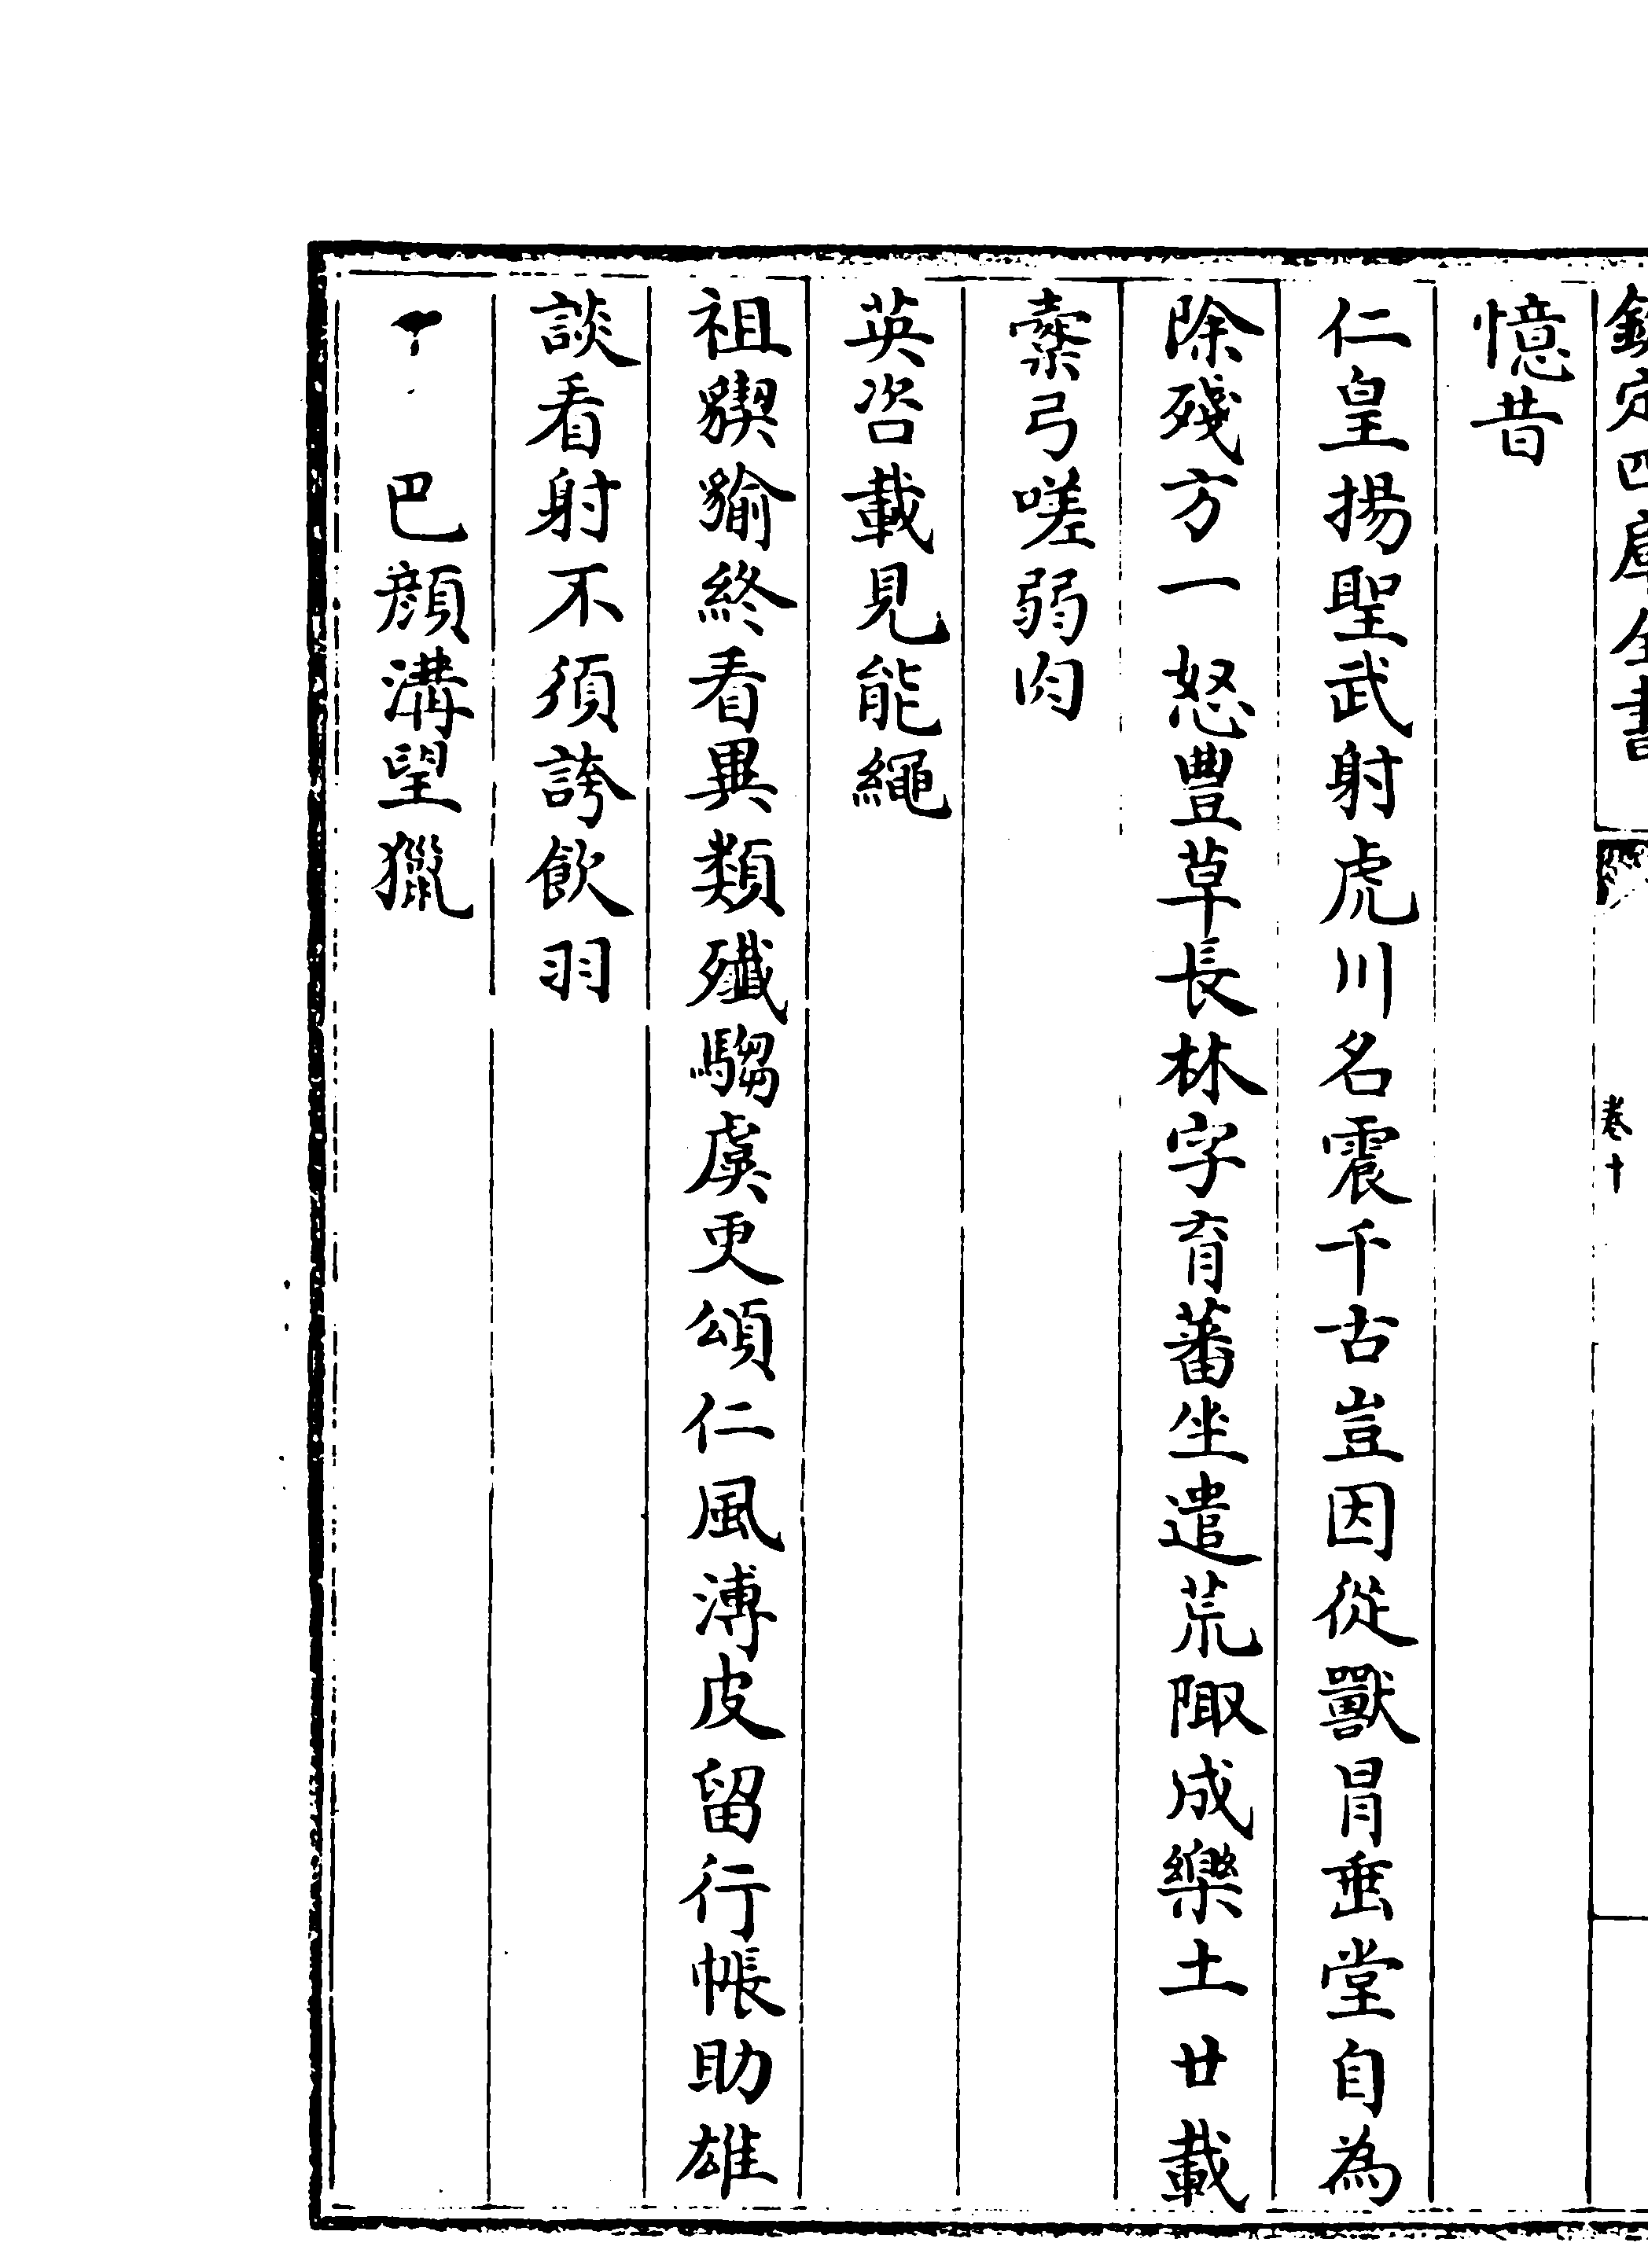 欽定四庫全書
卷十
憶昔
仁皇揚聖武射虎川名震千古豈因從獸冐垂堂自為
除殘方一怒豊草長林字育蕃坐遣荒陬成樂土廿載
櫜弓嗟弱肉
英咨載見能繩
祖貏貐終看異類殱騶虞更頌仁風溥皮留行帳助雄
談看射不須誇飲羽
巴顔溝望獵